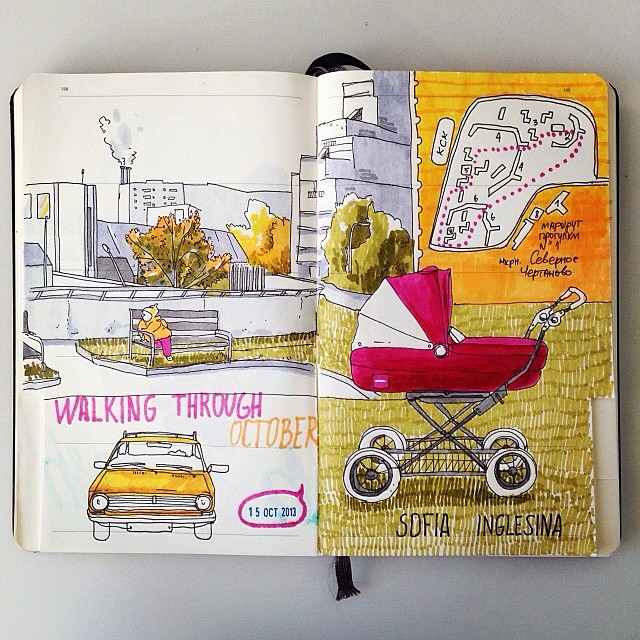 WALKING THROUGH
OCTOBER
15 OCT 2013
КСК
3
2
4
5
4
6
6
8
1
МАРШРУТ
ПРОГУЛКИ
№1
МКРН. Северное
Чертаново
SOFIA INGLESINA